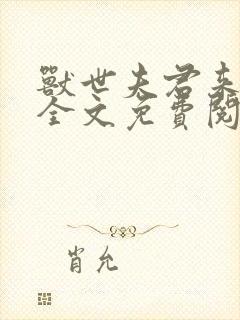 獸世夫君来
全文免費閱
肖允